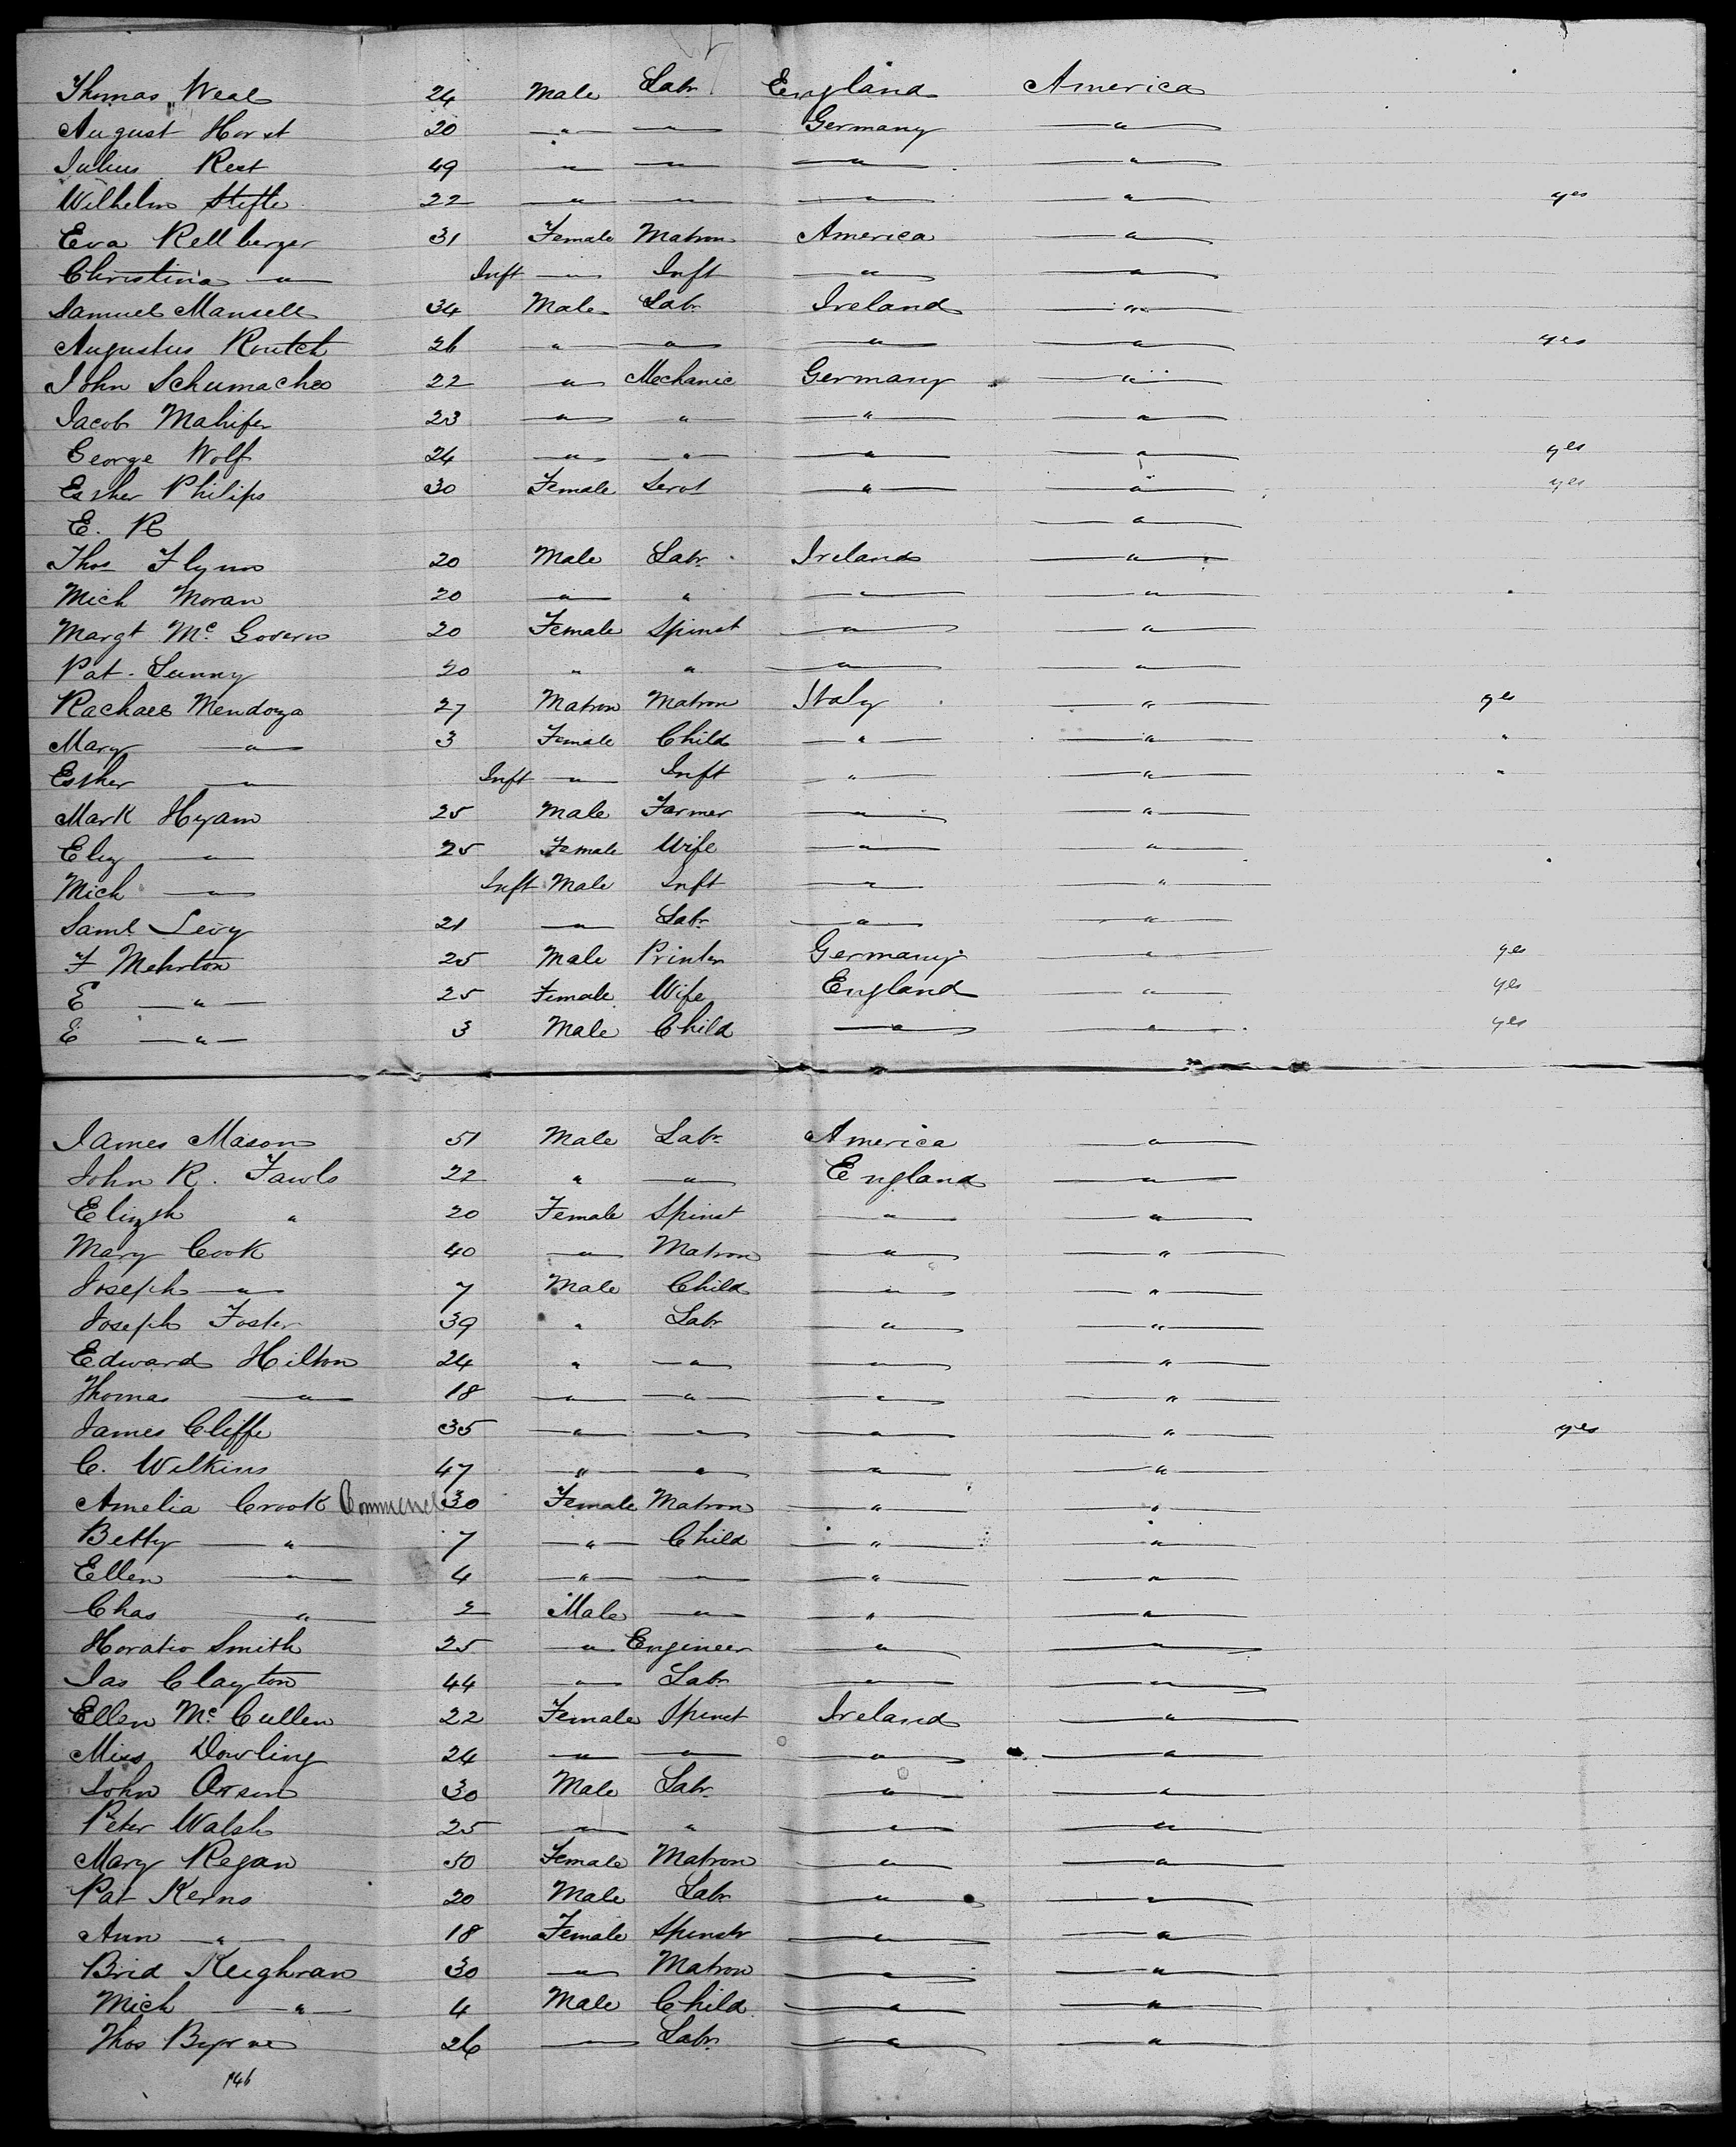 Thomas Weal 24 Male Labr England America
August Horst 20 " " Germany "
Julius Rest 49 " " " "
Wilhelm Stifle 22 " " " " yes
Eva Rellberger 31 Female Matron America "
Christina " Inft " Inft " "
Samuel Mansell 34 Male Labr Ireland "
Augustus Routch 26 " " " " yes
John Schumacher 22 " Mechanic Germany "
Jacob Mahifer 23 " " " "
George Wolf 24 " " " " yes
Esther Philips 30 Female Servt " " yes
E. R "
Thos Flynn 20 Male Labr Ireland "
Mich Moran 20 " " " "
Margt Mc Govern 20 Female Spinst " "
Pat Lunny 20 " " " "
Rachael Mendoza 27 Matron Matron Italy " yes
Mary " 3 Female Child " " "
Esther " Inft " Inft " " "
Mark Hyam 25 Male Farmer " "
Eliz " 25 Female Wife " "
Mich " Inft Male Inft " "
Saml Levy 21 " Labr " "
F Mehrton 25 Male Printer Germany " yes
E " 25 Female Wife England " yes
E " 3 Male Child " " yes
James Mason 51 Male Labr America "
John R. Fawls 22 " " England "
Elizth " 20 Female Spinst " "
Mary Cook 40 " Matron " "
Joseph " 7 Male Child " "
Joseph Foster 39 " Labr " "
Edward Hilton 24 " " " "
Thomas " 18 " " " "
James Cliffe 35 " " " " yes
C. Wilkins 47 " " " "
Amelia Crook 30 Female Matron " "
Betty " 7 " Child " "
Ellen " 4 " " " "
Chas " 2 Male " " "
Horatio Smith 25 " Engineer " "
Jas Clayton 44 " Labr " "
Ellen Mc Cullen 22 Female Spinst Ireland "
Miss Dowling 24 " " " "
John 30 Male Labr " "
Peter Walsh 25 " " " "
Mary Regan 50 Female Matron " "
Pat Kerns 20 Male Labr " "
Ann " 18 Female Spinstr " "
Brid Keighran 30 " Matron " "
Mich " 4 Male Child " "
Thos Byrne 26 " Labr " "
146